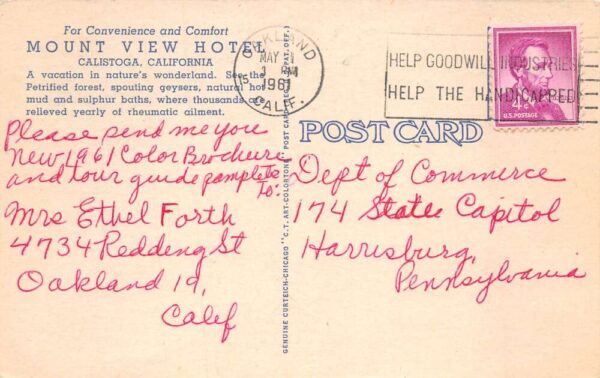 For Convenience and Comfort
MOUNT VIEW HOTEL
CALISTOGA, CALIFORNIA
A vacation in nature's wonderland. See the
Petrified forest, spouting geysers, natural hot
mud and sulphur baths, where thousands are
relieved yearly of rheumatic ailment.
OAKLAND
MAY 1
1 PM
1961
15
CALIF.
HELP GOODWILL INDUSTRIES
HELP THE HANDICAPPED
4¢
U.S. POSTAGE
POST CARD
Please send me you
New 1961 Color Brochure
and tour guide pamplets
to:
Mrs Ethel Forth
4734 Redding St
Oakland 19,
Calif
GENUINE CURTEICH-CHICAGO "C.T. ART-COLORTONE" POST CARD (REG. U.S. PAT. OFF.)
Dept of Commerce
174 State Capitol
Harrisburg,
Pennsylvania